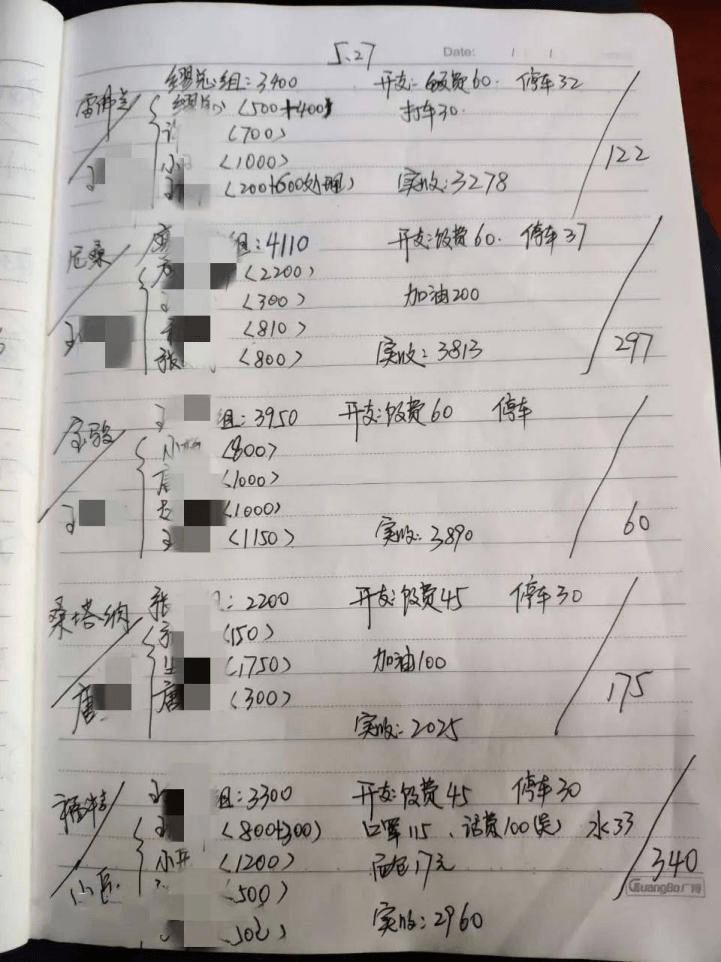 5.27 Date:
组:3400 开支:饭费60. 停车32
雷佛兰 <500+400> 打车30.
<700>
小 <1000> 122
王 <200+600处理> 实收:3278
尼桑 唐 组:4110 开支:饭费60. 停车37
<2200>
王 <300> 加油200
王 <810>
张 <800> 实收:3813 297
宝骏 王 组:3950 开支:饭费60 停车
小 <800>
唐 <1000>
王 <1000>
王 <1150> 实收:3890 60
桑塔纳 张 组:2200 开支:饭费45 停车30
<150>
<1750> 加油100
唐 唐 <300> 175
实收:2025
组:3300 开支:饭费45 停车30
<800+300> 口罩115、话费100(吴) 水33
小 <1200> 面包17元 340
<500>
实收:2960
GuangBo广博